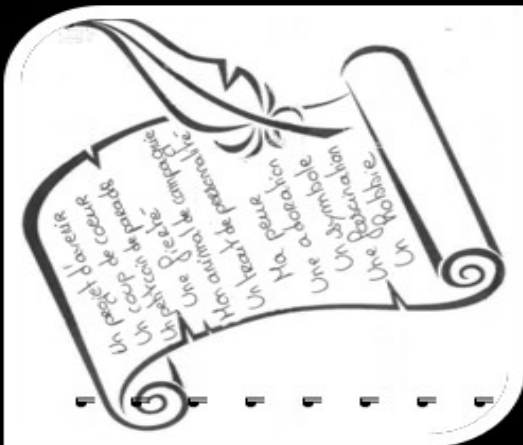 Un projet d'avenir
Un coup de coeur
Un petit coin de paradis
Une fierté
Mon animal de compagnie
Un trait de personnalité
Ma peur
Une adoration
Un symbole
Une fascination
Un Hobbie